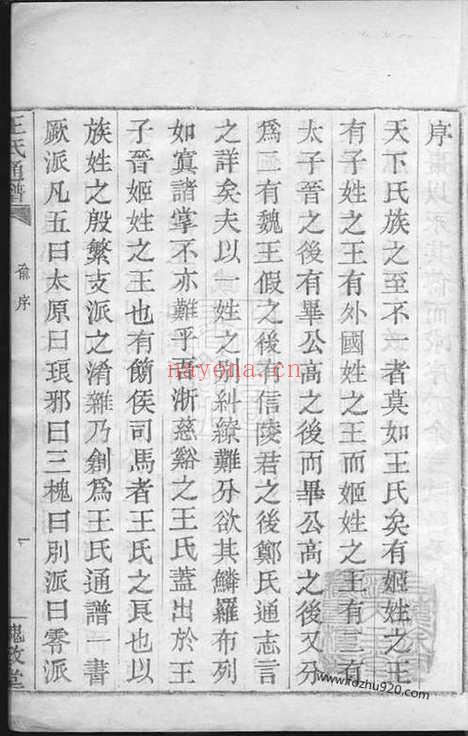 序
天下氏族之至不一者莫如王氏矣有姬姓之王
有子姓之王有外國姓之王而姬姓之王有三有
太子晉之後有畢公高之後而畢公高之後又分
爲二有魏王假之後有信陵君之後鄭氏通志言
之詳矣夫以一姓之別糾繚難分欲其鱗羅布列
如寘諸掌不亦難乎吾浙慈谿之王氏蓋出於王
子晉姬姓之王也有節侯司馬者王氏之良也以
族姓之殷繁支派之淆雜乃創爲王氏通譜一書
厥派凡五曰太原曰琅邪曰三槐曰別派曰零派
王氏通譜
序
一
槐政堂
nayona.cn
www.fozhu920.com